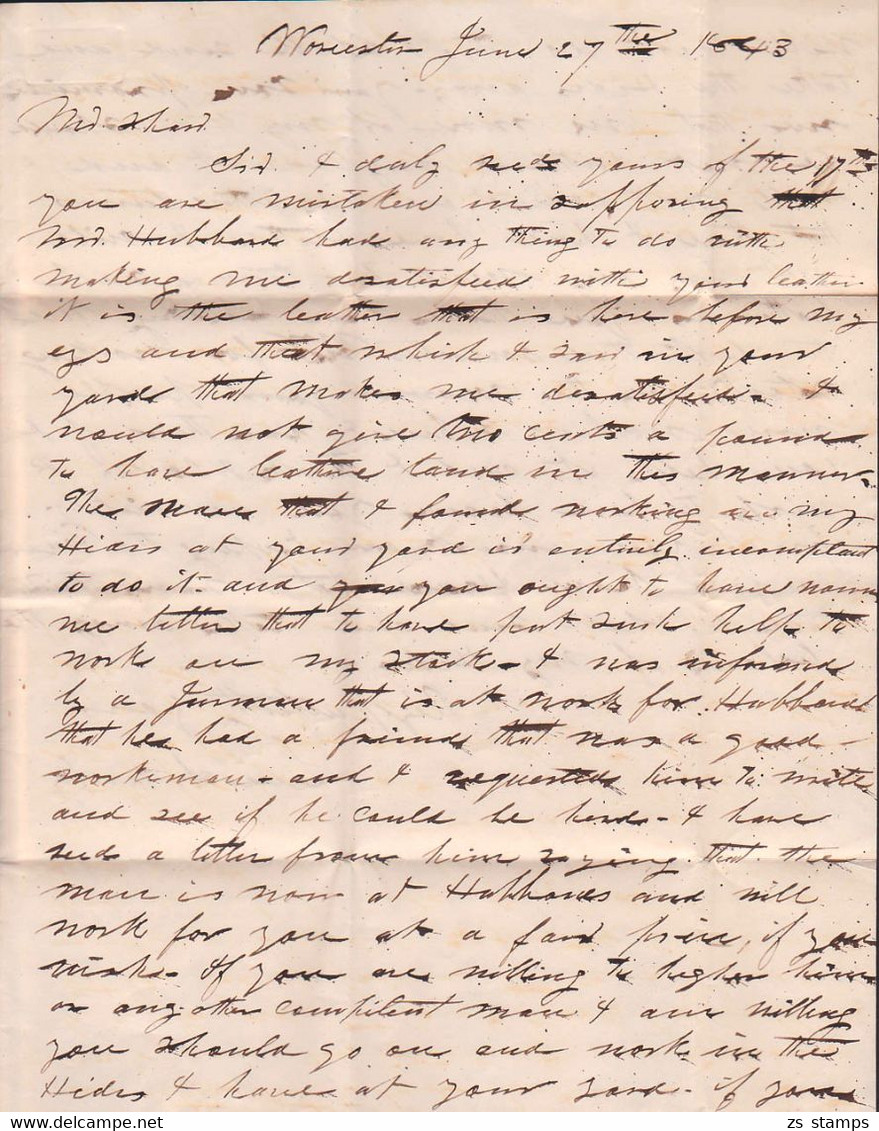 Worcester June 27th 1843
Mr. Shard.
Sir. I duly recd yours of the 17th
you are mistaken in supposing that
Mr. Hubbard had any thing to do with
making me desatisfeed with your leather
it is the leather that is here before my
eys and that which I saw in your
yard that makes me desatisfied. I
would not give two cents a pound
to have leather tand in this manner.
The man that I found working in my
Hides at your yard is entirely incompitant
to do it. and you ought to have known
me better that to have put such help to
work on my stock. I was informed
by a Jurman that is at work for Hubbard
that he had a friend that was a good
workeman - and I requested him to write
and see if he could be hird - I have
recd a letter from him saying that the
man is now at Hubbards and will
work for you at a fair price, if you
wish. If you are willing to higher him
or any other compitent man I am willing
you should go on and work in the
Hides I have at your yard - if you
zs stamps